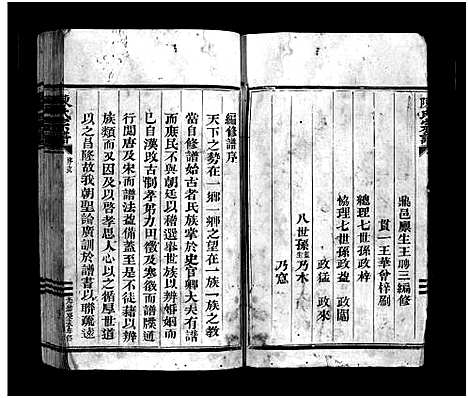 鼎邑廩生王聘三編修
貫一王華曾梓刷
總理七世孫政梓
協理七世孫政盈 政閣
政猛 政來
八世孫監生乃木
乃寬
編修譜序
天下之勢在一鄉一鄉之望在一族一族之教
當自修譜始古者民族掌於史官卿大夫有譜
而庶民不與朝廷以稽選舉世族以辨婚姻而
已自漢改古制孝第力田徵及寒微而譜牒通
行閱唐及宋而譜法益備蓋至是不徒藉以辨
族類而又因及以啓孝思人心以之循厚世道
以之昌隆故我朝聖諭廣訓於譜書以聯疏遠
陳氏宗譜